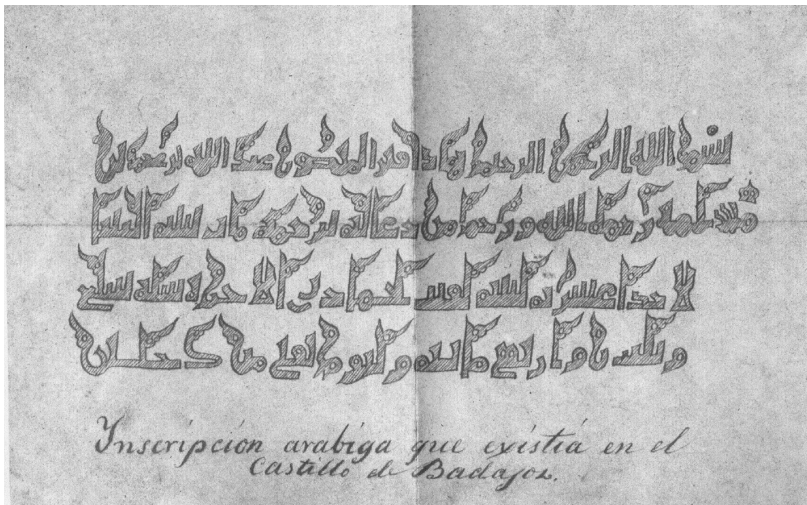 بسم الله الرحمن الرحيم هذا قبر المنصور عبد الله بن محمد بن
مسلمة رحمه الله ورحم من دعا له برحمة مات ليلة الثلثا
لاحدا عشر ليلة بقيت لجمادى الاخرة سنة سبع
وثلثين واربع مائة
Inscripcion arabiga que existiá en el
Castillo de Badajoz.